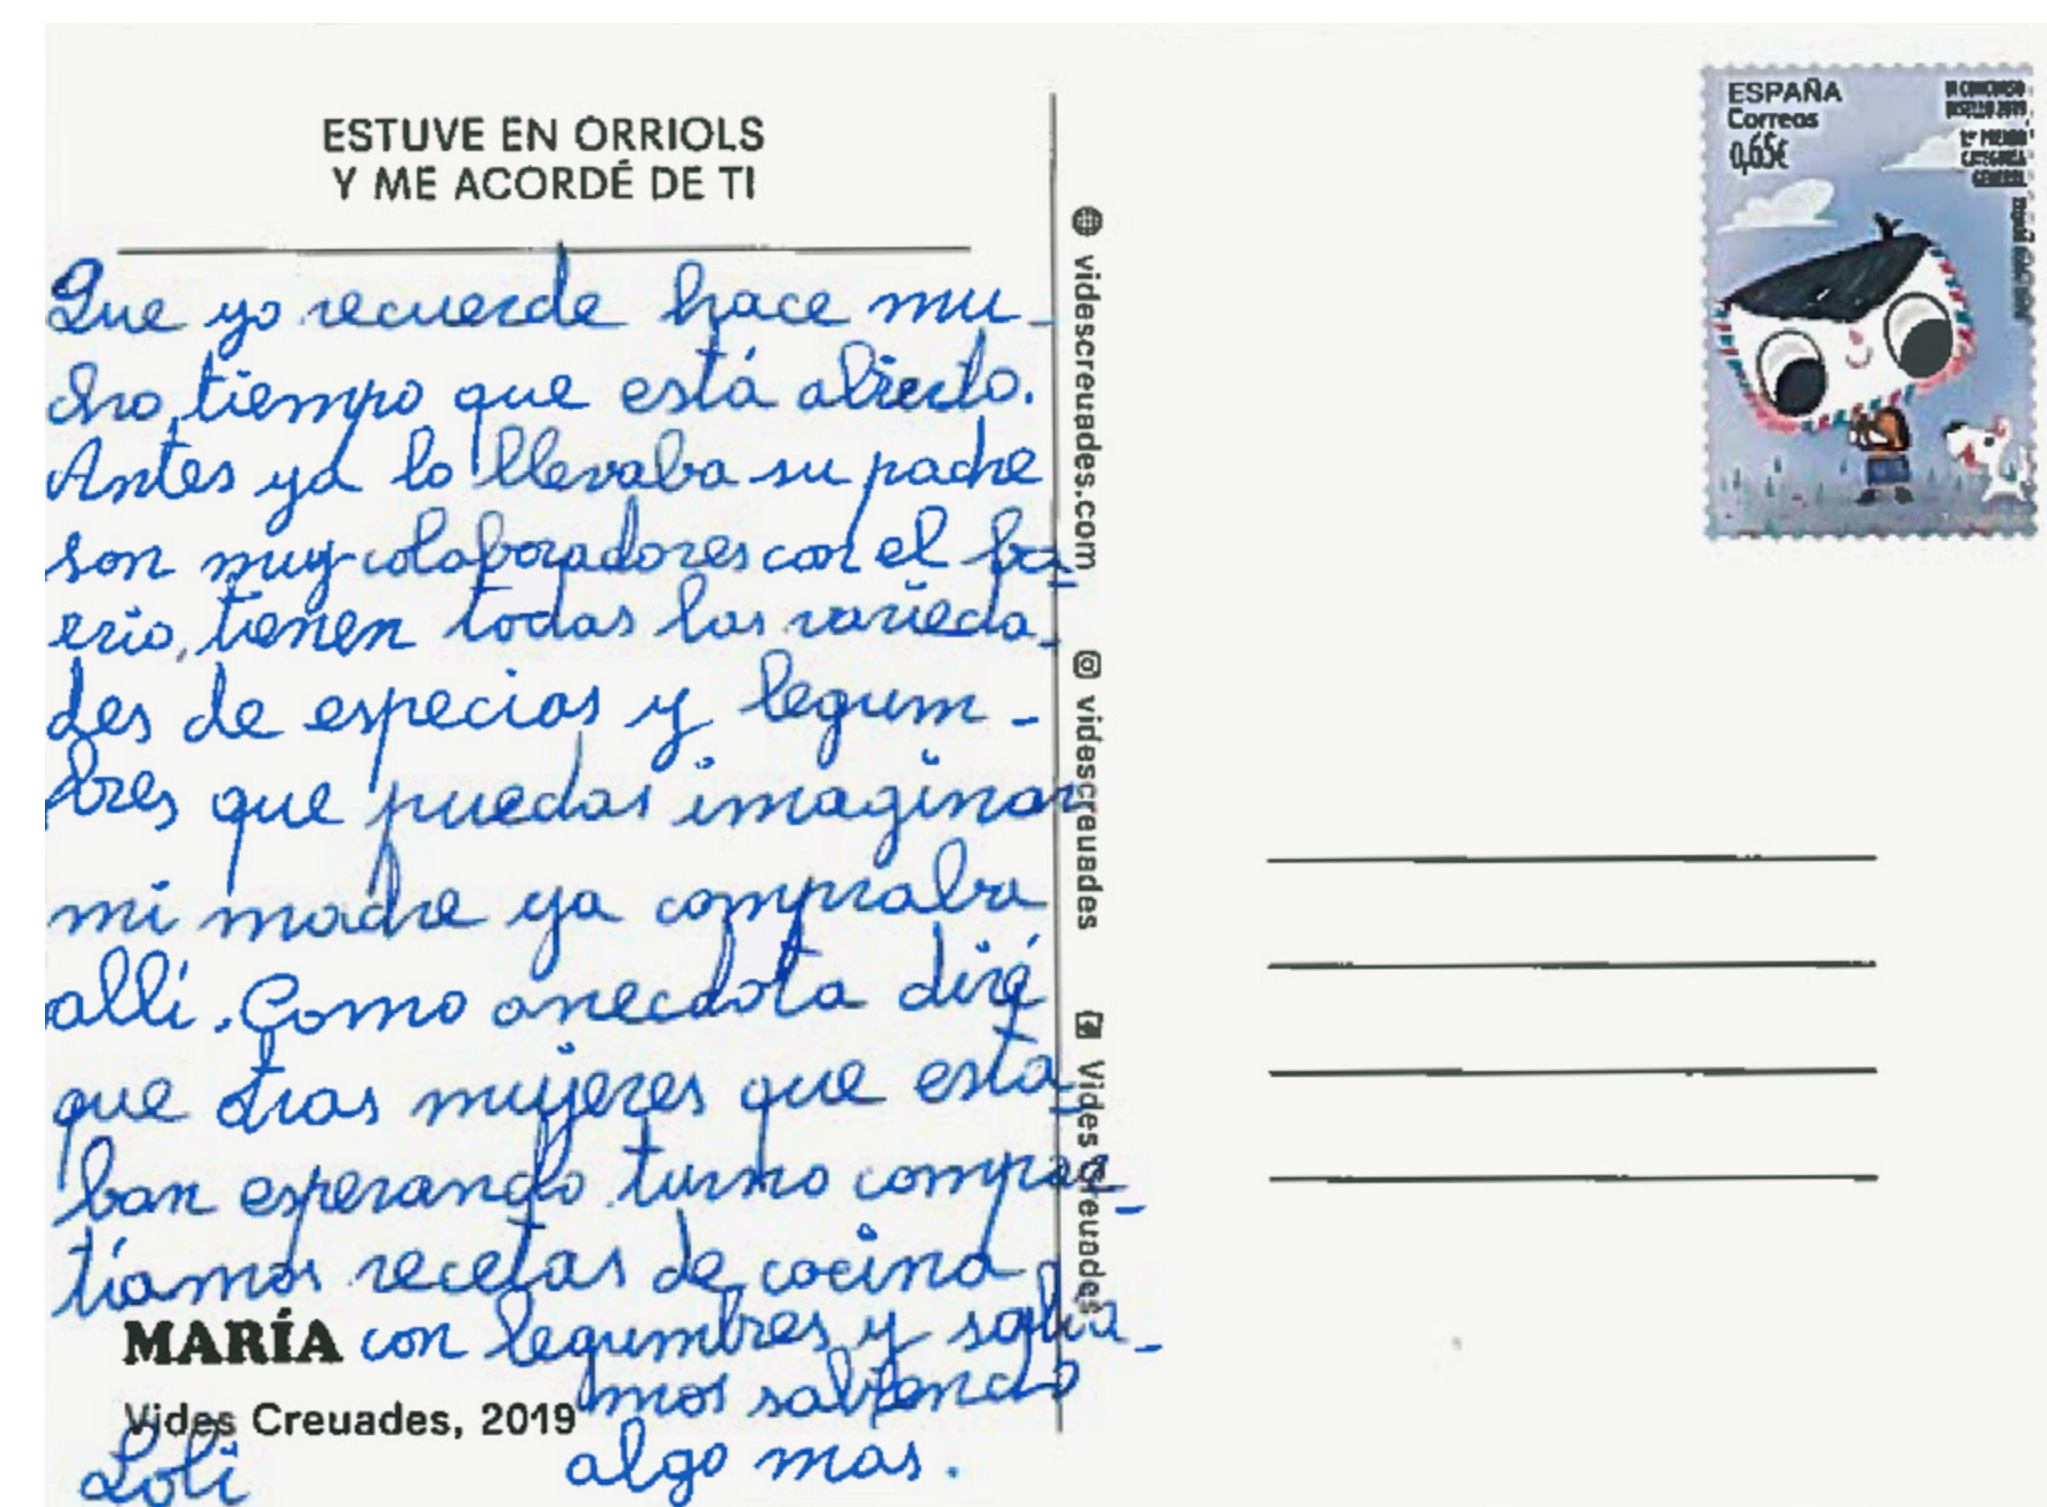 ESTUVE EN ORRIOLS
Y ME ACORDÉ DE TI
Que yo recuerde hace mu-
cho tiempo que está abierto.
Antes ya lo llevaba su padre
son muy colaboradores con el ba-
rrio, tienen todas las varieda-
des de especias y legum-
bres que puedas imaginar
mi madre ya compraba
allí. Como anecdota diré
que otras mujeres que esta-
ban esperando turno compar-
tíamos recetas de cocina
MARÍA con legumbres y salía-
mos sabiendo
Vides Creuades, 2019
algo mas.
Loli
videscreuades.com
videscreuades
Vides Creuades
ESPAÑA
Correos
0,65€
1er PREMIO
CATEGORÍA
GENERAL